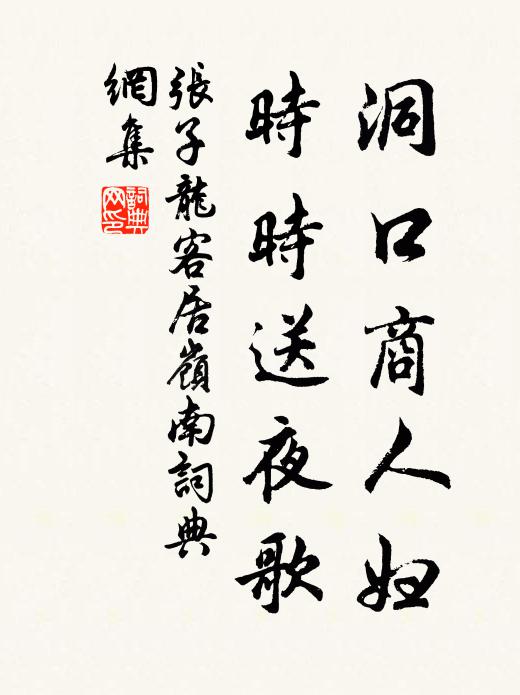 洞口商人妇
時時送夜歌
張子龍客居嶺南詞典
網集
詞典网印